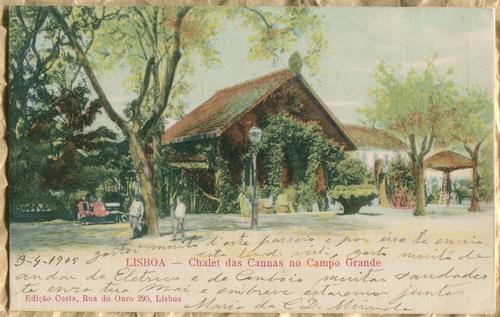 3-4-1905 gostei muito d'este passeio e por isso te envio
esta vista gosto muito de
LISBOA — Chalet das Cannas no Campo Grande
andar de Eletrico e de Comboio muitas saudades
te envia tua Mãi e embreve estaremos juntas
Edição Costa, Rua do Ouro 295, Lisboa
Maria da C. D. Miranda